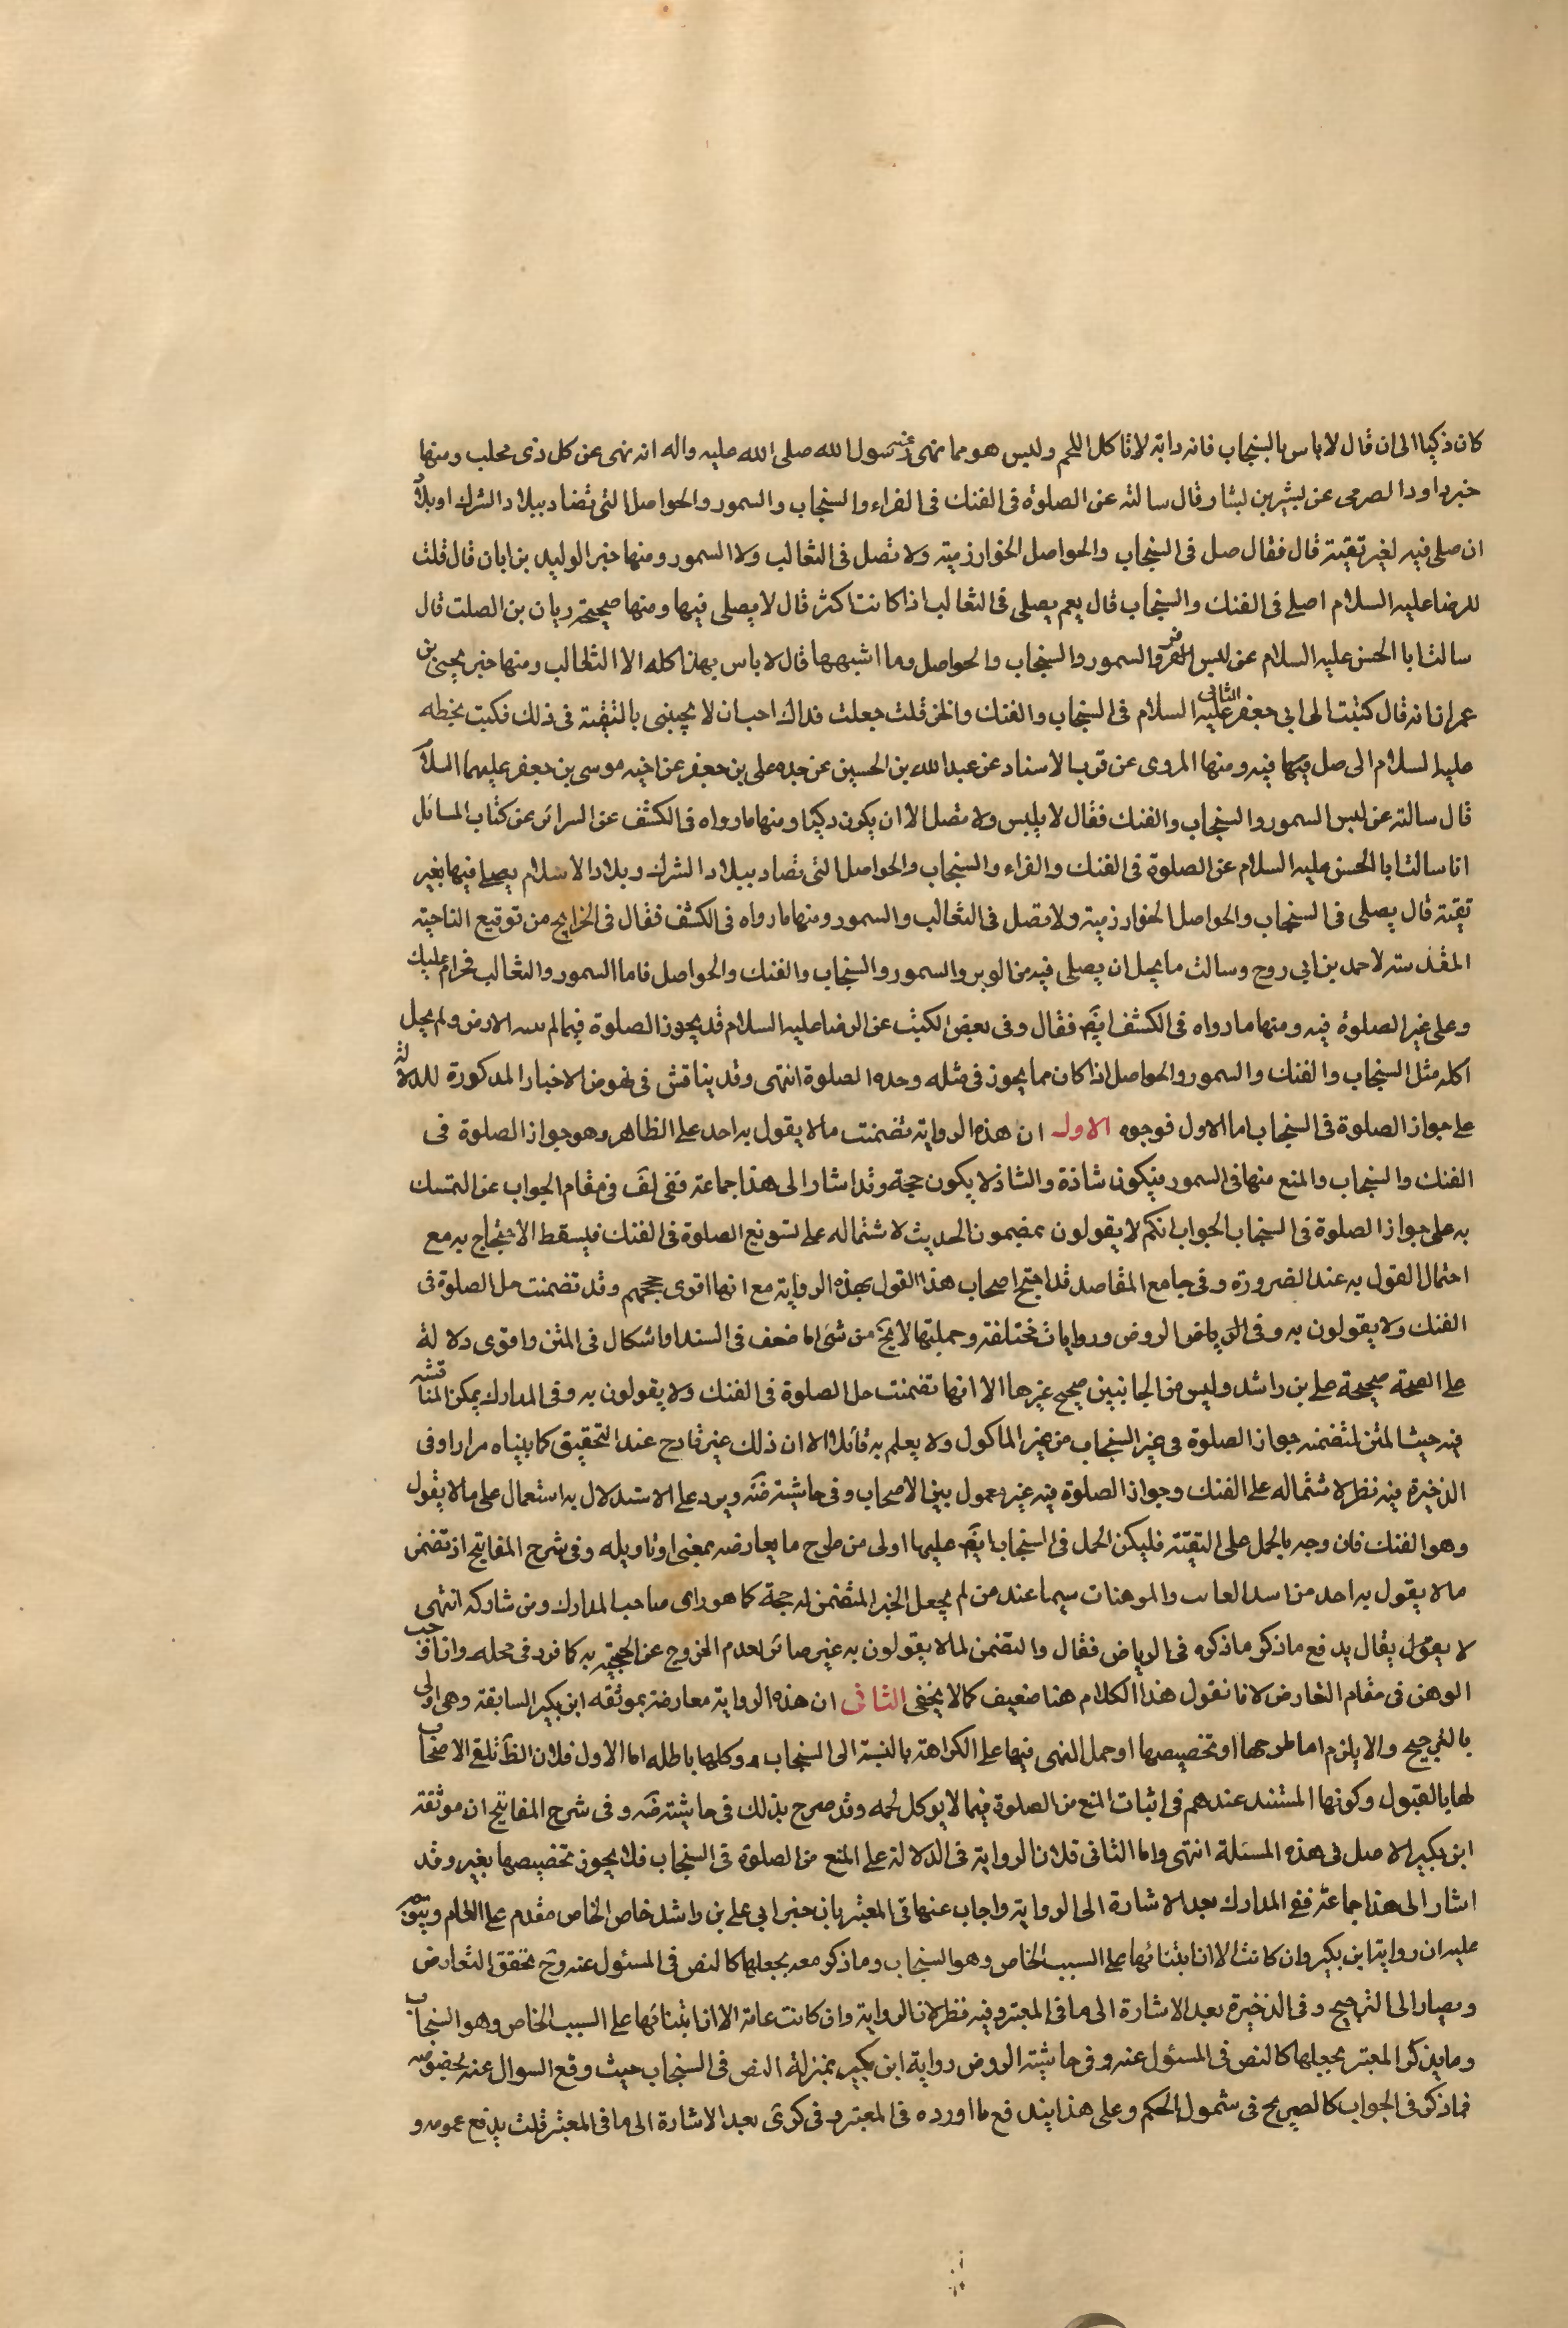 كان ذكيا الى ان قال لا باس بالسنجاب فانه دابة لا تاكل اللحم وليس هو مما نهى عنه رسول الله صلى الله عليه واله انه نهى عن كل ذى مخلب ومنها
خبر داود الصرمى عن بشير بن بشار قال سالته عن الصلوة فى الفنك فى الفراء والسنجاب والسمور والحواصل التى تصاد ببلاد الشرك او بلاد
ان صلى فيه لغير تقية قال فقال صل فى السنجاب والحواصل الخوارزمية ولا تصل فى الثعالب ولا السمور ومنها خبر الوليد بن ابان قال قلت
للرضا عليه السلام اصلى فى الفنك والسنجاب قال نعم يصلى فى الثعالب اذا كانت ذكية قال لا يصلى فيها ومنها صحيحة ريان بن الصلت قال
سالت ابا الحسن عليه السلام عن لبس الفراء والسمور والسنجاب والحواصل وما اشبهها قال لا باس بهذا كله الا الثعالب ومنها خبر يحيى بن
عمران انه قال كتبت الى ابى جعفر الثانى عليه السلام فى السنجاب والفنك والخز قلت جعلت فداك احب ان لا تجيبنى بالتقية فى ذلك فكتب بخطه
عليه السلام الى صل فيها فيه ومنها المروى عن قرب الاسناد عن عبد الله بن الحسين عن جده على بن جعفر عن اخيه موسى بن جعفر عليهما السلام
قال سالته عن لبس السمور والسنجاب والفنك فقال لا يلبس ولا تصل الا ان يكون ذكيا ومنها ما رواه فى الكشف عن السرائر عن كتاب المسائل
انا سالت ابا الحسن عليه السلام عن الصلوة فى الفنك والفراء والسنجاب والحواصل التى تصاد ببلاد الشرك وبلاد الاسلام يصلى فيها بغير
تقية قال يصلى فى السنجاب والحواصل الخوارزمية ولا تصل فى الثعالب والسمور ومنها ما رواه فى الكشف فقال فى الخرايج من توقيع الناحية
المقدسة لاحمد بن ابى روح وسالت ما يحل ان يصلى فيه من الوبر والسمور والسنجاب والفنك والحواصل فاما السمور والثعالب فحرام عليك
وعلى غيرك الصلوة فيه ومنها ما رواه فى الكشف ايضً فقال وفى بعض الكتب عن الرضا عليه السلام قد يجوز الصلوة فيما لم الارض ولم يحل
اكله مثل السنجاب والفنك والسمور والحواصل اذا كان مما يجوز فى مثله وحده الصلوة انتهى وقد يناقش فى نهوض الاخبار المذكورة للدلالة
على جواز الصلوة فى السنجاب اما الاول فوجوه الاول ان هذه الرواية تضمنت ما لا يقول به احد على الظاهر وهو جواز الصلوة فى
الفنك والسنجاب والمنع منها فى السمور فيكون شاذة والشاذ لا يكون حجة وقد اشار الى هذا جماعة ففى لف فى مقام الجواب عن التمسك
به على جواز الصلوة فى السنجاب الجواب انكم لا يقولون بمضمون الحديث لاشتماله على تسويغ الصلوة فى الفنك فيسقط الاحتجاج به مع
احتمال القول به عند الضرورة وفى جامع المقاصد قد احتج اصحاب هذا القول بهذه الرواية مع انها اقوى حججهم وقد تضمنت حل الصلوة فى
الفنك ولا يقولون به وفى الرياض الروض وروايات مختلفة وجملتها لا يخ من شى اما ضعف فى السند او اشكال فى المتن واقوى دلالة
على الصحة صحيحة على بن راشد وليس من الجانبين صحيح غيرها الا انها تضمنت حل الصلوة فى الفنك ولا يقولون به وفى المدارك يمكن المناقشة
فيه حيث المتن لتضمنه جواز الصلوة فى غير السنجاب من غير الماكول ولا يعلم به قائلا الا ان ذلك غير قادح عند التحقيق كما بيناه مرارا وفى
الذخيرة فيه نظر لاشتماله على الفنك وجواز الصلوة فيه غير معمول بين الاصحاب وفى حاشيته ويرد على الاستدلال به اشتمال على ما لا يقول
وهو الفنك فان وجه بالحمل على التقية فليكن الحمل فى السنجاب ايضً عليها اولى من طرح ما يعارضه بمعنى او تاويله وفى شرح المفاتيح اذ تضمن
ما لا يقول به احد من اسد والموهنات سيما عند من لم يجعل الخبر المتضمن له حجة كما هو راى صاحب المدارك ومن شاركه انتهى
لا يقول يقال يدفع ما ذكر ما ذكره فى الرياض فقال والتضمن لما لا يقولون به غير ضائر لعدم الخروج عن الحجية به كما قرر فى محله وان اوجب
الوهن فى مقام التعارض لانا نقول هذا الكلام هنا ضعيف كما لا يخفى الثانى ان هذه الرواية معارضة بموثقة ابن بكير السابقة وهى اولى
بالترجيح والا يلزم اما طرحها او تخصيصها او حمل النهى فيها على الكراهة بالنسبة الى السنجاب وكلها باطلة اما الاول فلان الظ تلقى الاصحاب
لها بالقبول وكونها المستند عندهم فى اثبات المنع من الصلوة فيما لا يوكل لحمه وقد صرح بذلك فى حاشيته وفى شرح المفاتيح ان موثقة
ابن بكير الاصل فى هذه المسئلة انتهى واما الثانى فلان الرواية فى الدلالة على المنع من الصلوة فى السنجاب فلا يجوز تخصيصها بغيره وقد
اشار الى هذا جماعة ففى المدارك بعد الاشارة الى الرواية واجاب عنها فى المعتبر بان خبر ابى على بن راشد خاص والخاص مقدم على العام ويتوجه
عليه ان رواية ابن بكير وان كانت الا ان ابتنائها على السبب الخاص وهو السنجاب وما ذكر معه يجعلها كالنص فى المسئول عنه وح تحقق التعارض
ويصار الى الترجيح وفى الذخيرة بعد الاشارة الى ما فى المعتبر وفيه نظر لان الرواية وان كانت عامة الا ان ابتنائها على السبب الخاص وهو السنجاب
وما يذكر المعتبر يجعلها كالنص فى المسئول عنه وفى حاشية الروض رواية ابن بكير بمنزلة النص فى السنجاب حيث وقع السوال عنه بخصوصه
فما ذكر فى الجواب كالصريح فى شمول الحكم وعلى هذا يندفع ما اورده فى المعتبر وفى كرى بعد الاشارة الى ما فى المعتبر قلت يدفع عمومه و